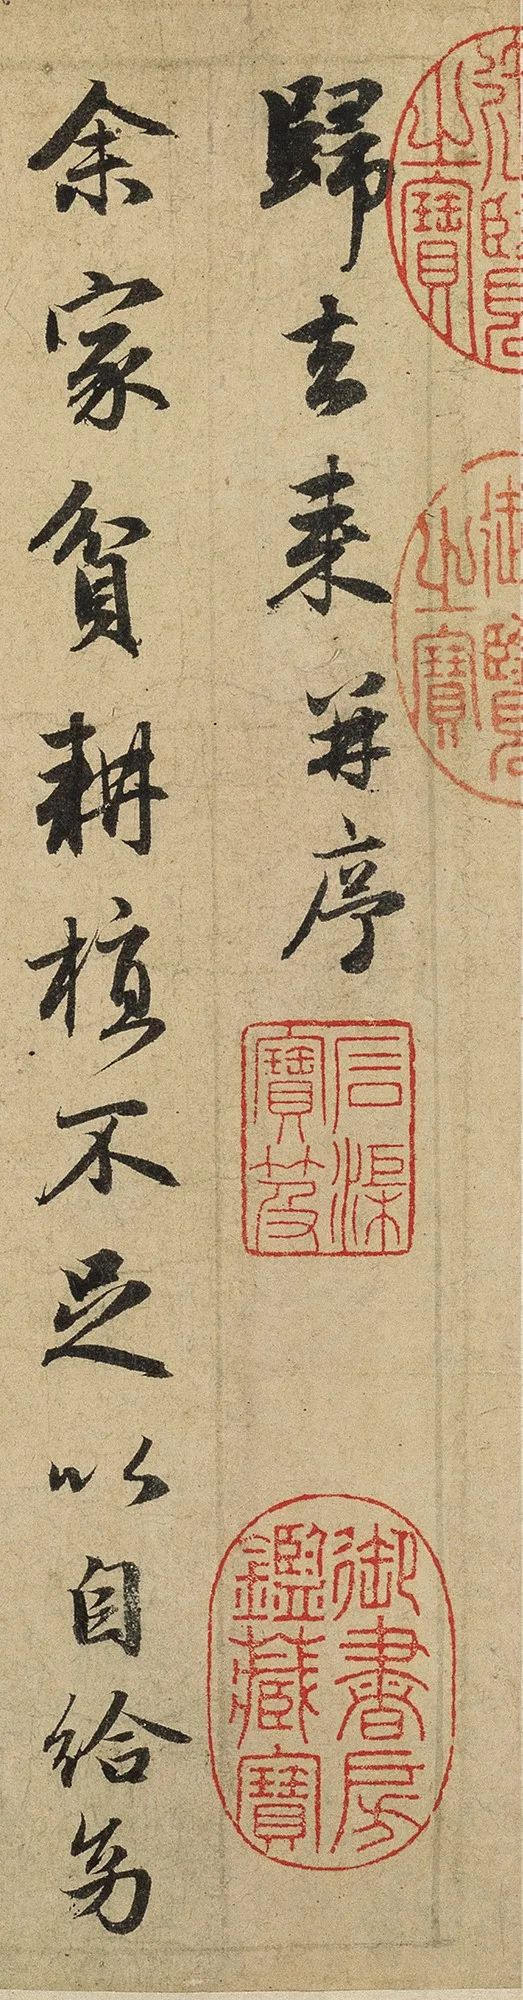 歸去来并序
余家貧耕植不足以自給幼
石渠寶笈
御書房鑑藏寶
御覽之寶